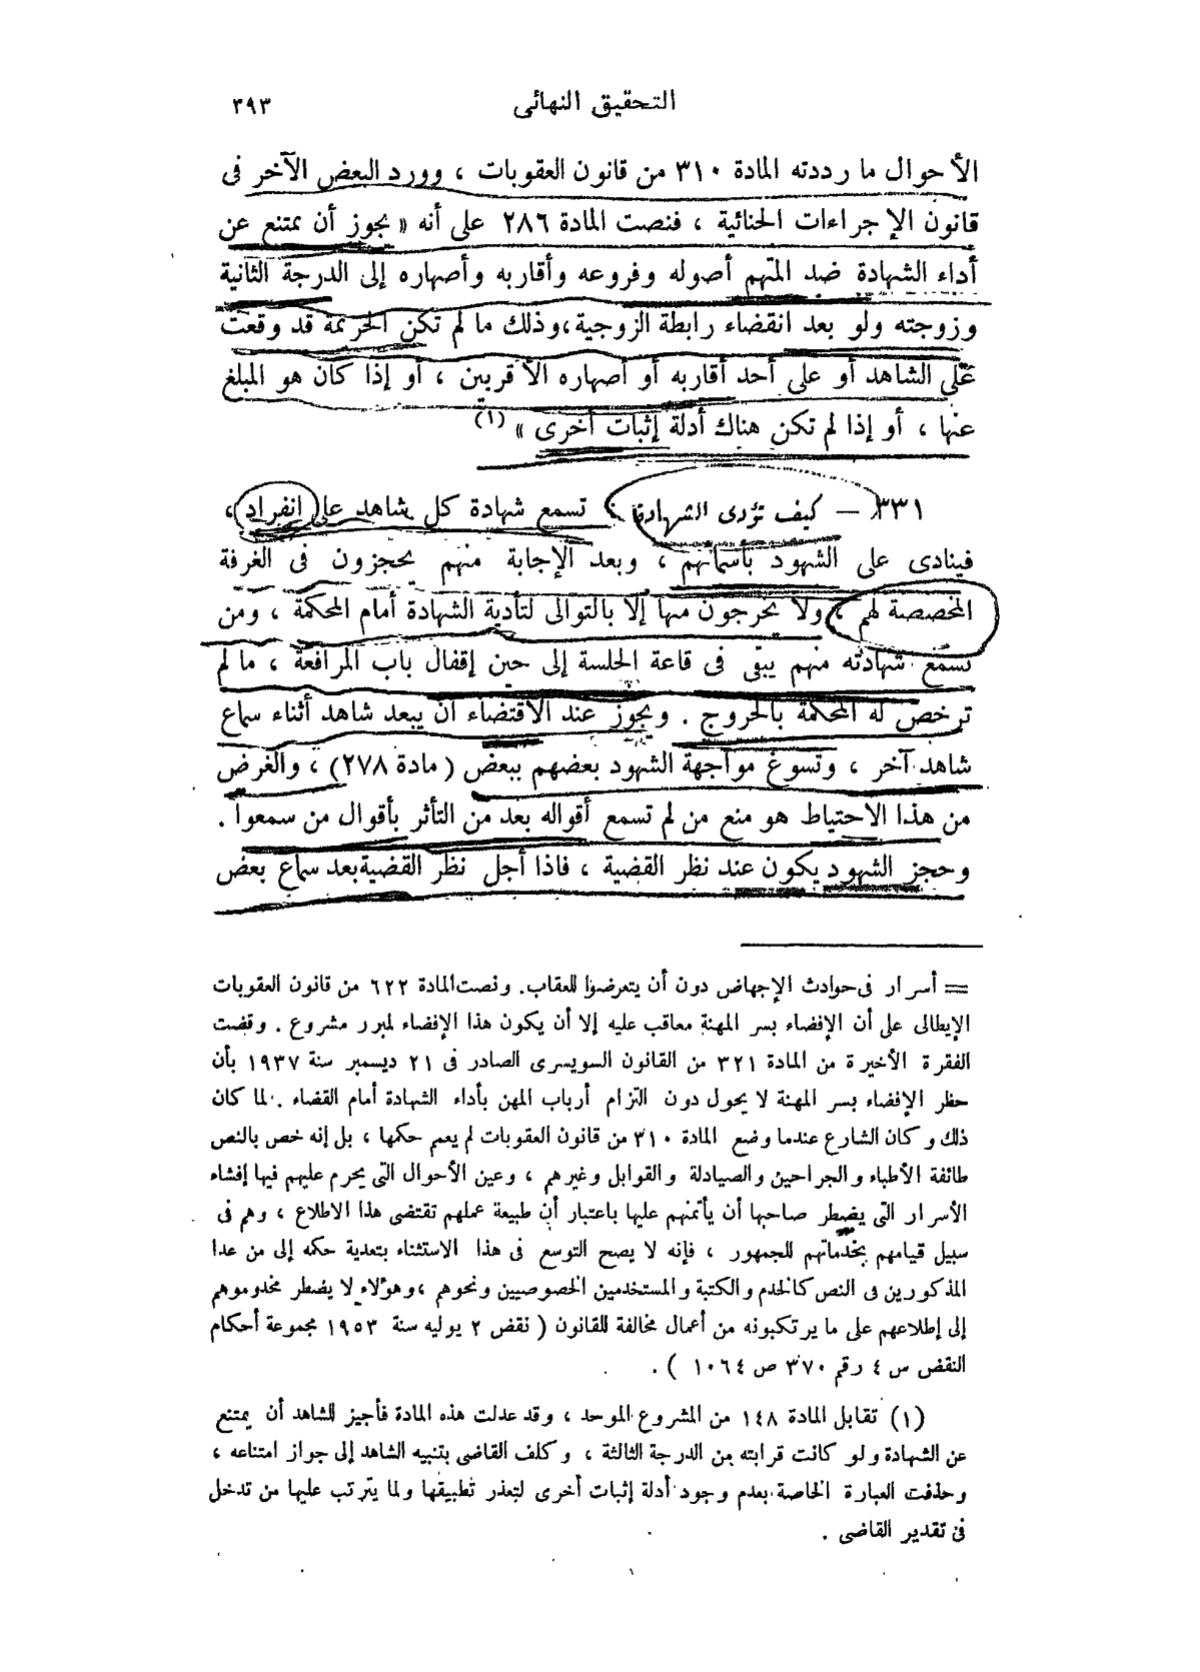 التحقيق النهائى ٣٩٣
الأحوال ما رددته المادة ٣١٠ من قانون العقوبات ، وورد البعض الآخر فى
قانون الإجراءات الجنائية ، فنصت المادة ٢٨٦ على أنه « يجوز أن يمتنع عن
أداء الشهادة ضد المتهم أصوله وفروعه وأقاربه وأصهاره إلى الدرجة الثانية
وزوجته ولو بعد انقضاء رابطة الزوجية ، وذلك ما لم تكن الجريمة قد وقعت
على الشاهد أو على أحد أقاربه أو أصهاره الأقربين ، أو إذا كان هو المبلغ
عنها ، أو إذا لم تكن هناك أدلة إثبات أخرى » (١)
٣٣١ — كيف تؤدى الشهادة : تسمع شهادة كل شاهد على انفراد ،
فينادى على الشهود بأسمائهم ، وبعد الإجابة منهم يحجزون فى الغرفة
المخصصة لهم ، ولا يخرجون منها إلا بالتوالى لتأدية الشهادة أمام المحكمة ، ومن
تسمع شهادته منهم يبقى فى قاعة الجلسة إلى حين إقفال باب المرافعة ، ما لم
ترخص له المحكمة بالخروج . ويجوز عند الاقتضاء أن يبعد شاهد أثناء سماع
شاهد آخر ، وتسوغ مواجهة الشهود بعضهم ببعض ( مادة ٢٧٨ ) ، والغرض
من هذا الاحتياط هو منع من لم تسمع أقواله بعد من التأثر بأقوال من سمعوا .
وحجز الشهود يكون عند نظر القضية ، فاذا أجل نظر القضية بعد سماع بعض
= أسرار فى حوادث الإجهاض دون أن يتعرضوا للعقاب . ونصت المادة ٦٢٢ من قانون العقوبات
الإيطالى على أن الإفضاء بسر المهنة معاقب عليه إلا أن يكون هذا الإفضاء لمبرر مشروع . وقضت
الفقرة الأخيرة من المادة ٣٢١ من القانون السويسرى الصادر فى ٢١ ديسمبر سنة ١٩٣٧ بأن
حظر الإفضاء بسر المهنة لا يحول دون التزام أرباب المهن بأداء الشهادة أمام القضاء . لما كان
ذلك وكان الشارع عندما وضع المادة ٣١٠ من قانون العقوبات لم يعمم حكمها ، بل إنه خص بالنص
طائفة الأطباء والجراحين والصيادلة والقوابل وغيرهم ، وعين الأحوال التى يحرم عليهم فيها إفشاء
الأسرار التى يضطر صاحبها أن يأتمنهم عليها باعتبار أن طبيعة عملهم تقتضى هذا الاطلاع ، وهم فى
سبيل قيامهم بخدماتهم للجمهور ، فإنه لا يصح التوسع فى هذا الاستثناء بتعدية حكمه إلى من عدا
المذكورين فى النص كالخدم والكتبة والمستخدمين الخصوصيين ونحوهم ، وهؤلاء لا يضطر مخدوموهم
إلى إطلاعهم على ما يرتكبونه من أعمال مخالفة للقانون ( نقض ٢ يوليه سنة ١٩٥٣ مجموعة أحكام
النقض س ٤ رقم ٣٧٠ ص ١٠٦٤ ) .
(١) تقابل المادة ١٤٨ من المشروع الموحد ، وقد عدلت هذه المادة فأجيز للشاهد أن يمتنع
عن الشهادة ولو كانت قرابته من الدرجة الثالثة ، وكلف القاضى بتنبيه الشاهد إلى جواز امتناعه ،
وحذفت العبارة الخاصة بعدم وجود أدلة إثبات أخرى لتعذر تطبيقها ولما يترتب عليها من تدخل
فى تقدير القاضى .